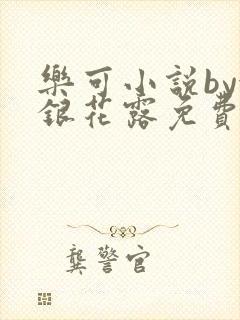 樂可小說by
銀花露免費
龔警官